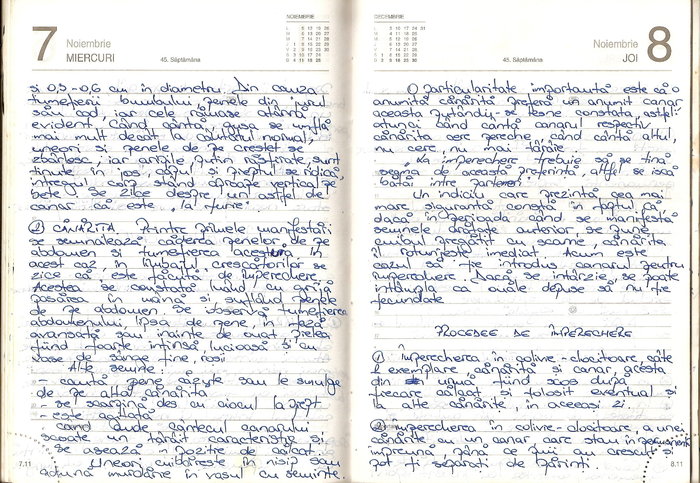 7 Noiembrie
MIERCURI
45. Săptămâna
NOIEMBRIE
și 0,5-0,6 cm în diametru. Din cauza
tumefierii bumbului, penele din jurul
sau cad, iar cele rămase atârnă
evident. Când cântă, gușa se umflă
mai mult decât la cântecul normal,
uneori și penele de pe creștet se
zbârlesc; iar aripile puțin răsfirate, sunt
ținute în jos, capul și pieptul se ridică,
întregul corp stând aproape vertical pe
bete. Se zice despre un astfel de
canar că este „la fune".
① CÂNĂRIȚA. Printre primele manifestări
se semnalează căderea penelor de pe
abdomen și tumefierea acestuia. În
acest caz, în limbajul crescătorilor se
zice că este „pătată" de împerechere.
Acestea se constată luând cu grijă
pasărea în mână și suflând penele
de pe abdomen. Se observă tumefierea
abdomenului, lipsa de pene, în fază
avansată sau înainte de ouat, pielea
fiind foarte întinsă, lucioasă și cu
vase de sânge fine, roșii.
Alte semne:
- caută pene căzute sau le smulge
de pe altă cânăriță
- se scarpină des cu ciocul la piept
- este agitată
- când aude cântecul canarului
scoate un țârâit caracteristic și
se așează în poziție de călcat.
Uneori cuibărește în nisip sau
adună murdărie în vasul cu semințe.
7.11
DECEMBRIE
8 Noiembrie
JOI
45. Săptămâna
O particularitate importantă este că o
anumită cânăriță preferă un anumit canar,
aceasta putându-se lesne constata astfel:
atunci când cântă canarul respectiv
cânărița cere pereche, când cântă altul,
nu cere, nu mai țârâie.
„La împerechere trebuie să se țină
seama de această preferință, altfel se iscă
bătăi între parteneri".
Un indiciu care prezintă cea mai
mare siguranță constă în faptul că
dacă în perioada când se manifestă
semnele arătate anterior, se pune
cuibul pregătit cu scame, cânărița
îl rotunjește imediat. Acum este
cazul să fie introdus canarul pentru
împerechere. Dacă se întârzie se poate
întâmpla ca ouăle depuse să nu fie
fecundate.
PROCEDEE DE ÎMPERECHERE
① Împerecherea în colivie-clocitoare, câte
1 exemplare cânăriță și canar, acesta
din urmă fiind scos după
fiecare călcat și folosit eventual și
la alte cânărițe, în aceeași zi.
② Împerecherea în colivie-clocitoare, a unei
cânărițe cu un canar, care stau în permanență
împreună, până ce puii au crescut și
pot fi separați de părinți.
8.11